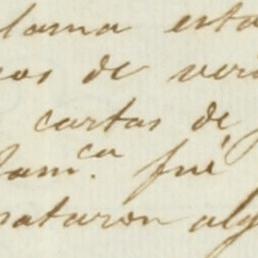 lama esta
cas de ver
cartas de
fam.ca fué
trataron alg